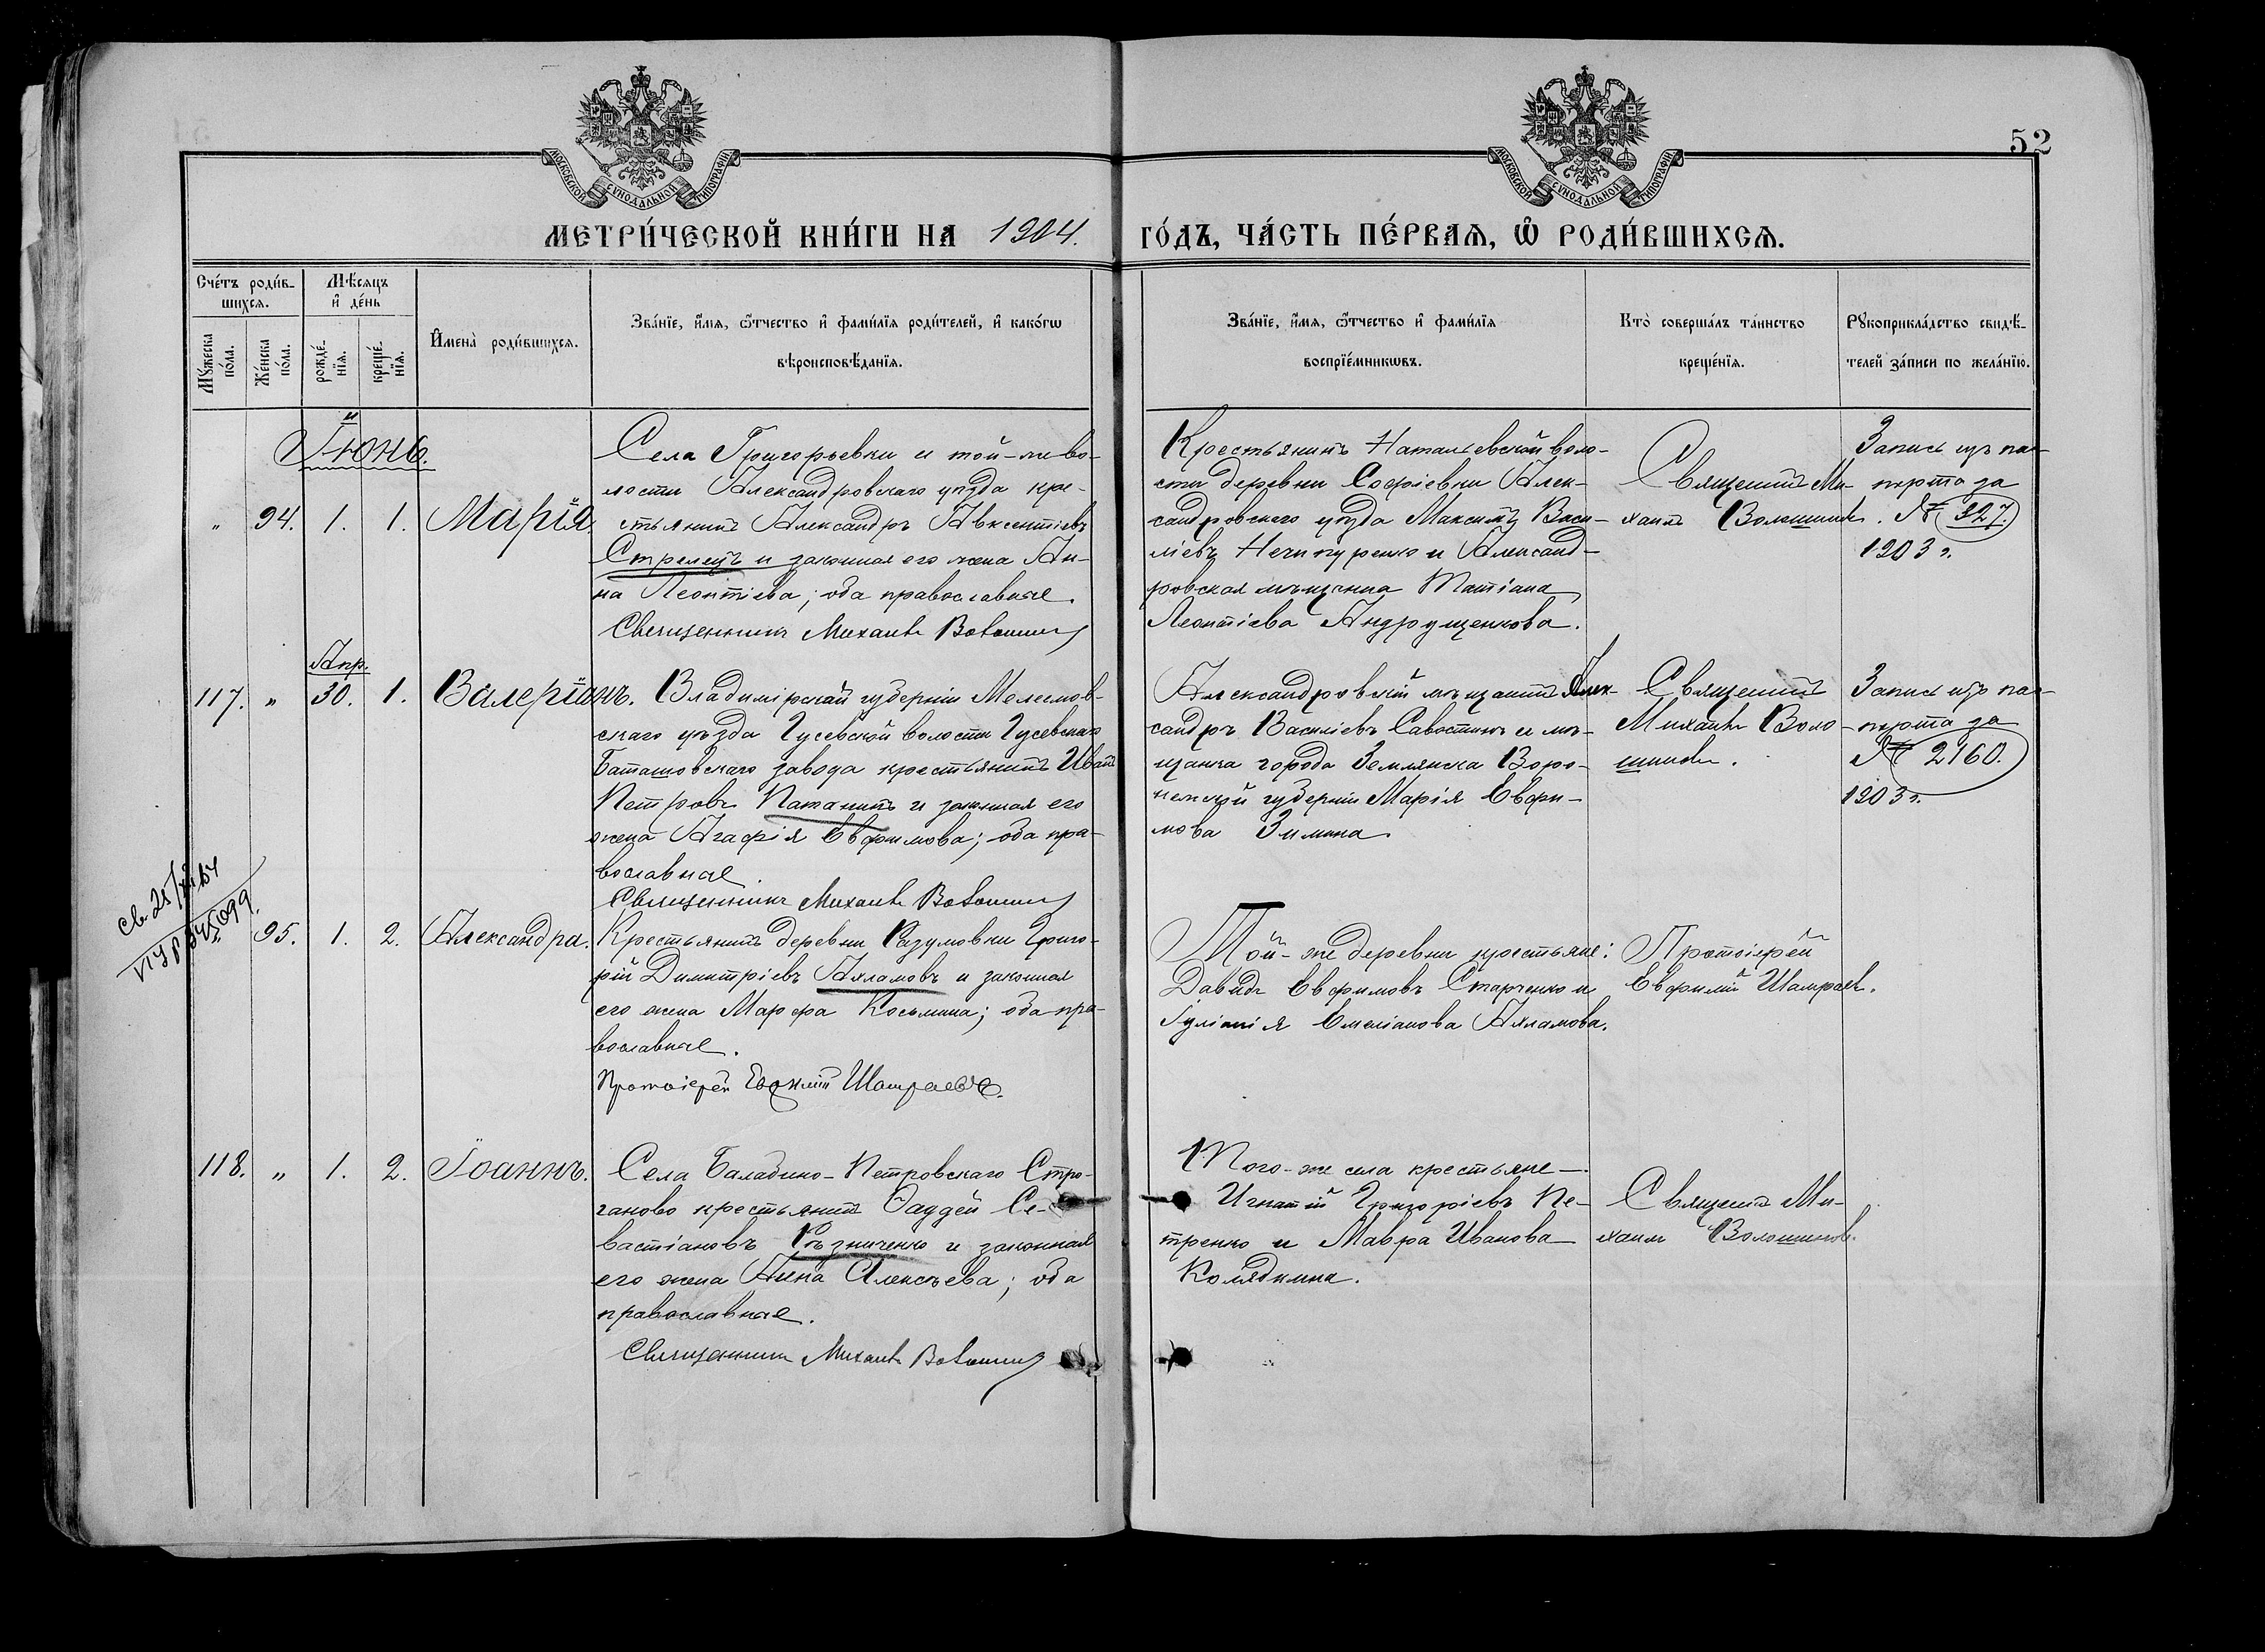 52
МОСКОВСКОЙ СѴНОДАЛЬНОЙ ТИПОГРАФІИ
МОСКОВСКОЙ СѴНОДАЛЬНОЙ ТИПОГРАФІИ
МЕТРИ́ЧЕСКОЙ КНИ́ГИ НА 1904. ГО́ДЪ, ЧА́СТЬ ПЕ́РВАѦ, Ѽ РОДИ́ВШИХСѦ.
Сче́тъ роди́в-
шихсѧ.
Мꙋжеска по́ла.
Же́нска по́ла.
Мѣсѧцъ и҆ де́нь
рожде́-нїѧ.
креще́-нїѧ.
И҆мена̀ роди́вшихсѧ.
Зва́нїе, и҆́мѧ, ѻ҆́тчество и҆ фами́лїѧ роди́телей, и҆ како́гѡ
вѣроисповѣ́данїѧ.
Зва́нїе, и҆́мѧ, ѻ҆́тчество и҆ фами́лїѧ
воспрїе́мникѡвъ.
Кто̀ соверша́лъ та́инство
креще́нїѧ.
Рꙋкоприкла́дство свидѣ́-
телей за́писи по жела́нїю.
Іюнь.
„ 94. 1. 1. Марія.
Села Григорьевки и той-же во-
лости Александровскаго уѣзда кре-
стьянинъ Александръ Авксентіевъ
Стрелецъ и законная его жена Ан-
на Леонтіева; оба православные.
Священникъ Михаилъ Волошинъ
Крестьянинъ Натальевской воло-
сти деревни Софіевки Алек-
сандровскаго уѣзда Максимъ Васи-
ліевъ Нечипуренко и Александ-
ровская мѣщанка Татіана
Леонтіева Андрущенкова.
Священникъ Ми-
хаилъ Волошинъ.
Запись изъ пас-
порта за
№ 327.
1903 г.
Апр.
117. „ 30. 1. Валеріанъ.
Владимірской губерніи Меленков-
скаго уѣзда Гусевской волости Гусевскаго
Баташовскаго завода крестьянинъ Иванъ
Петровъ Паташинъ и законная его
жена Агафія Евфимова; оба пра-
вославные.
Священникъ Михаилъ Волошинъ
Александровскій мѣщанинъ Алек-
сандръ Василіевъ Савостинъ и мѣ-
щанка города Землянска Воро-
нежской губерніи Марія Евфи-
мова Зимина.
Священникъ
Михаилъ Воло-
шиновъ.
Запись изъ пас-
порта за
№ 2160.
1903 г.
„ 95. 1. 2. Александра.
Крестьянинъ деревни Разумовки Григо-
рій Димитріевъ Ахламовъ и законная
его жена Марфа Косьмина; оба пра-
вославные.
Протоіерей Евфимій Шамраевъ.
Той-же деревни крестьяне:
Давидъ Евфимовъ Старченко и
Іуліанія Емеліанова Ахламова.
Протоіерей
Евфимій Шамраевъ.
118. „ 1. 2. Іоаннъ.
Села Баладино-Петровскаго Стро-
ганово крестьянинъ Фаддей Се-
вастіановъ Рѣзниченко и законная
его жена Анна Алексѣева; оба
православные.
Священникъ Михаилъ Волошинъ
Того-же села крестьяне
Игнатій Григоріевъ Пе-
тренко и Мавра Иванова
Колядкина.
Священникъ Ми-
хаилъ Волошиновъ.